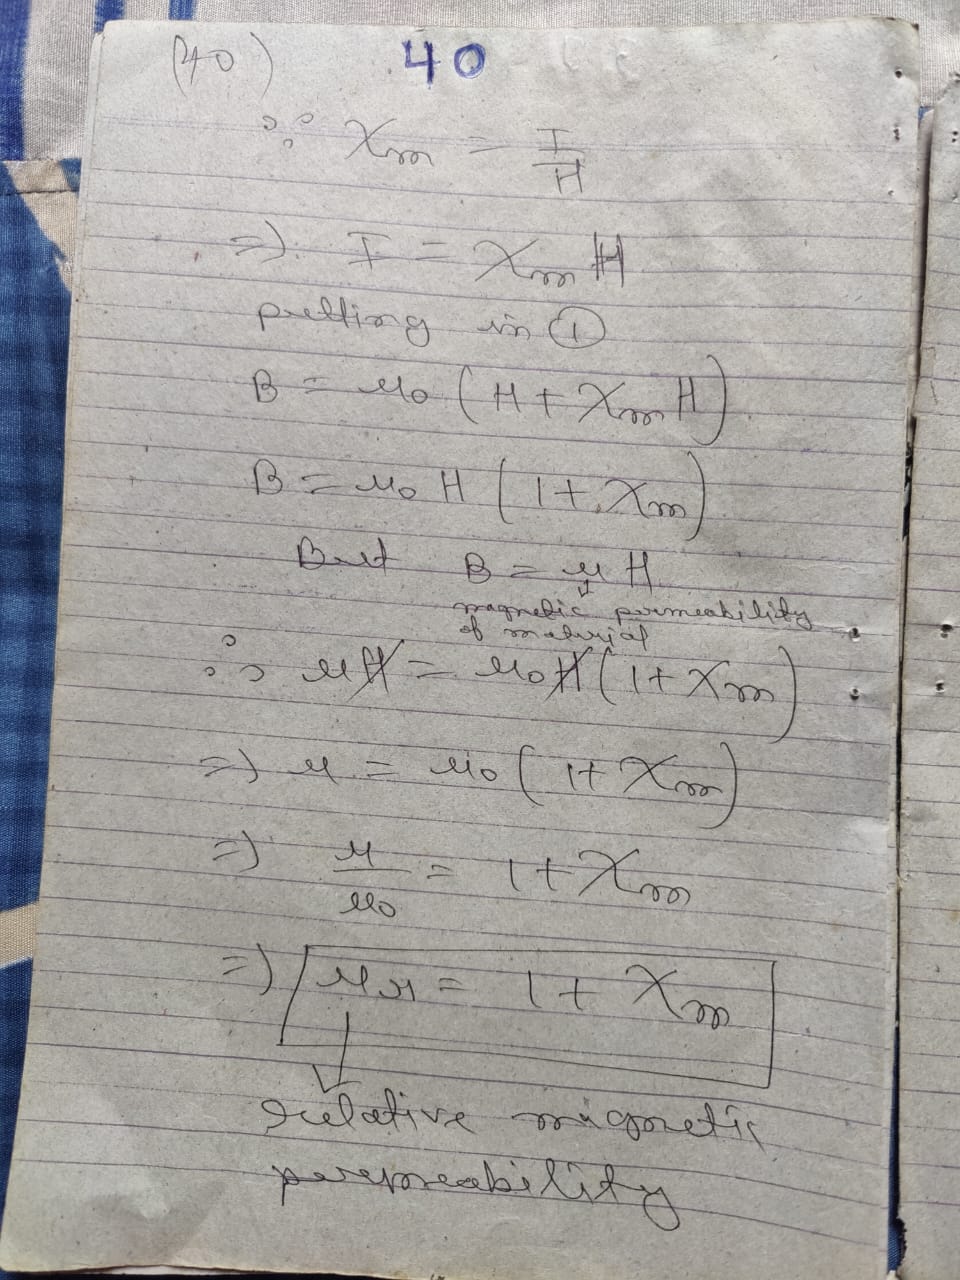 (40) 40
∵ χm = I/H
⇒). I = χm H
putting in ①
B = μ0 (H + χm H)
B = μ0 H (1 + χm)
But B = μ H
magnetic permeability
of material
∴ μH = μ0H (1 + χm)
⇒) μ = μ0 (1 + χm)
⇒) μ/μ0 = 1 + χm
⇒) μr = 1 + χm
relative magnetic
permeability